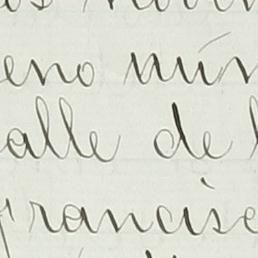 eno núm
alle de l
francisc